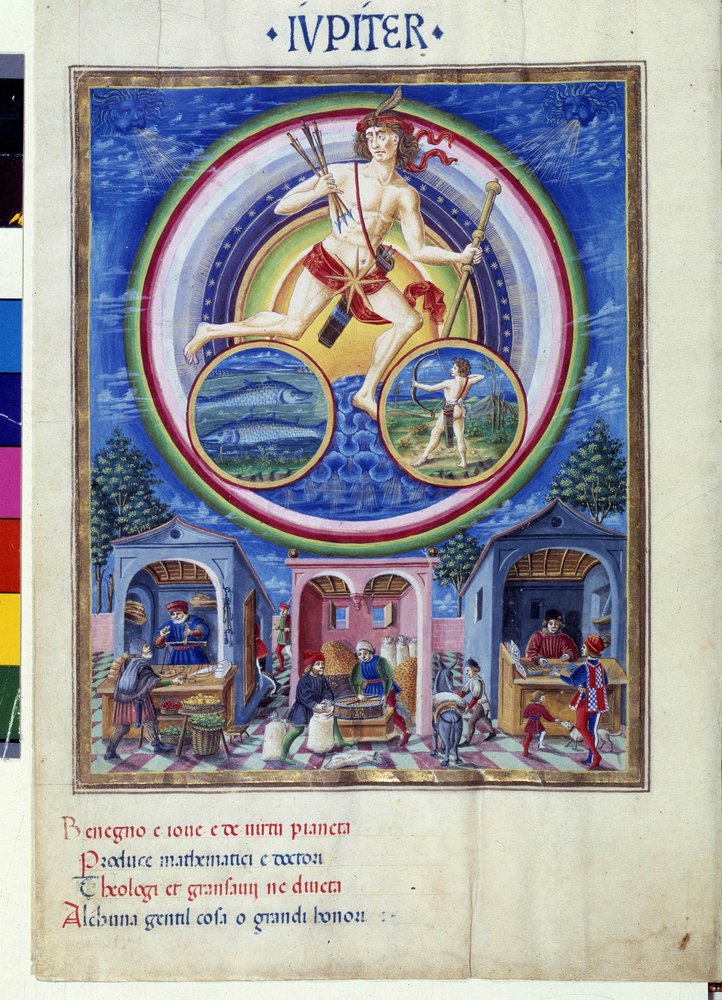 ·IVPITER·
Benegno e ioue e de uirtu pianeta
Produce mathematici e doctori
Theologi et gransauij ne diueta
Alchuna gentil cosa o grandi honori